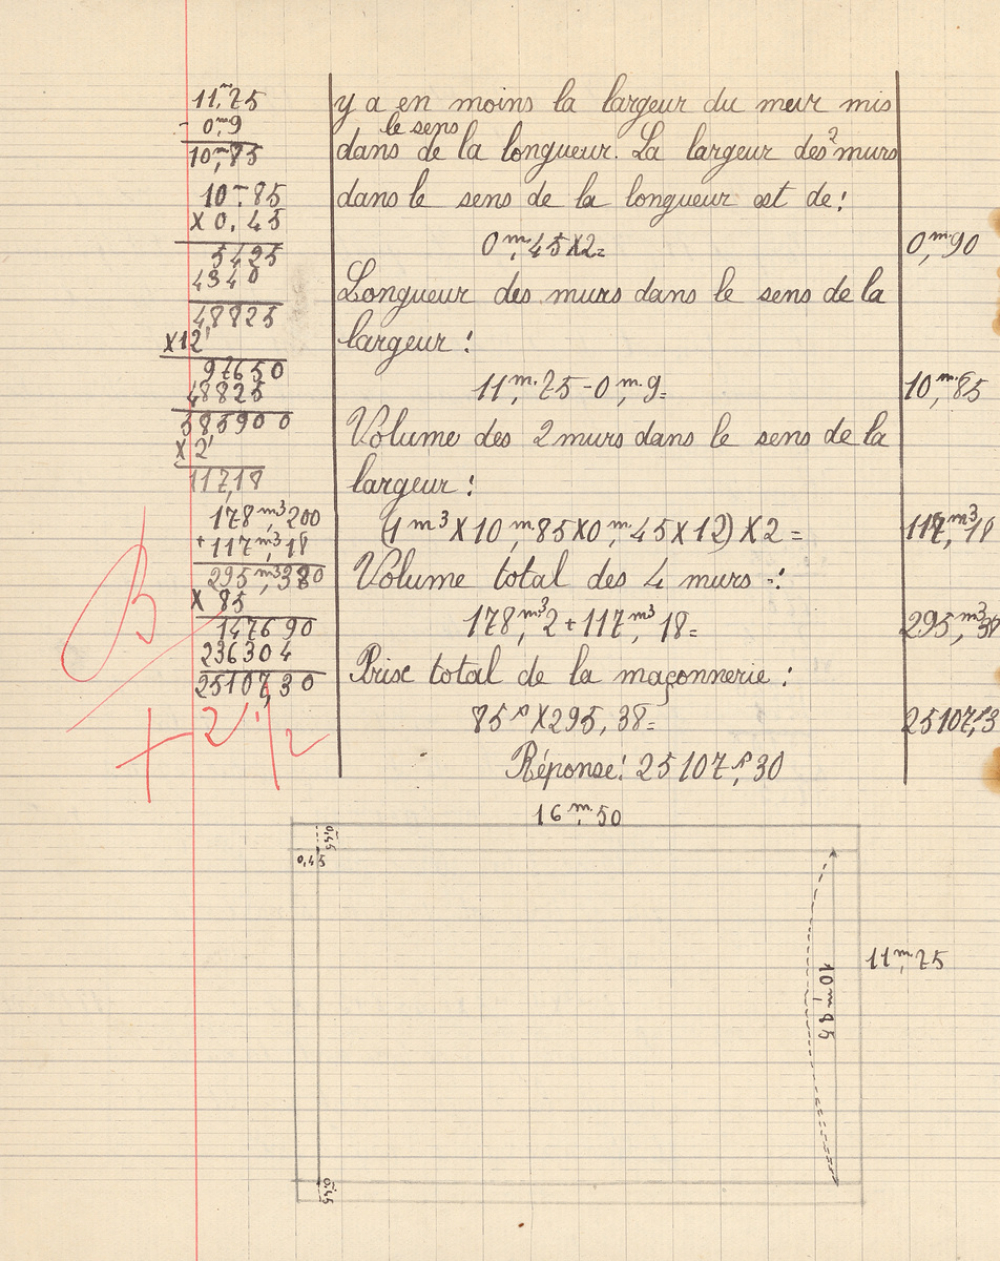 11,m75
- 0,m9
10,m85
10,m85
X 0,45
5425
4340
48825
X12
97650
48825
585900
X 2
117,18
178,m3200
+117,m318
295,m3380
X 85
147690
236304
25107,30
B
+ 2 1/2
y a en moins la largeur du mur mis
le sens
dans de la longueur. La largeur des 2 murs
dans le sens de la longueur est de:
0,m45X2= 0,m90
Longueur des murs dans le sens de la
largeur:
11,m75-0,m9= 10,m85
Volume des 2 murs dans le sens de la
largeur:
(1m3X10,m85X0,m45X12)X2= 117,m318
Volume total des 4 murs:
178,m32+117,m318= 295,m338
Prix total de la maçonnerie:
85fX295,38= 25107,f3
Réponse: 25107,f30
16,m50
0,45
0,45
11,m75
10,m85
0,45